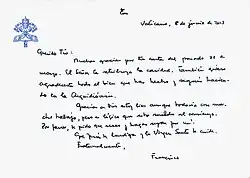 Vaticano, 8 de junio de 2013
Querido Tío:
Muchas gracias por tu carta del pasado 31 de
mayo. El bien lo retribuye la caridad. También quiero
agradecerte todo el bien que has hecho y seguís hacien-
do en la Arquidiócesis.
Gracias a Dios estoy bien aunque todavía con mu-
cho trabajo, pero es lógico que esto suceda al comienzo.
Por favor, te pido que reces y hagas rezar por mí.
Que Jesús te bendiga y la Virgen Santa te cuide.
Fraternalmente,
Francisco